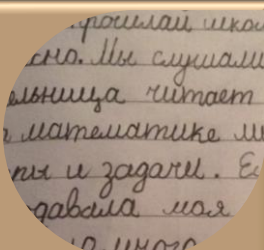 школ
сно. Мы слушали
ельница читает
математике м
ры и задачи. Е
давала моя
много